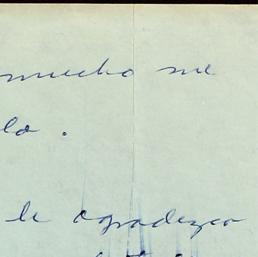 mucho me
lo.
le agradezco